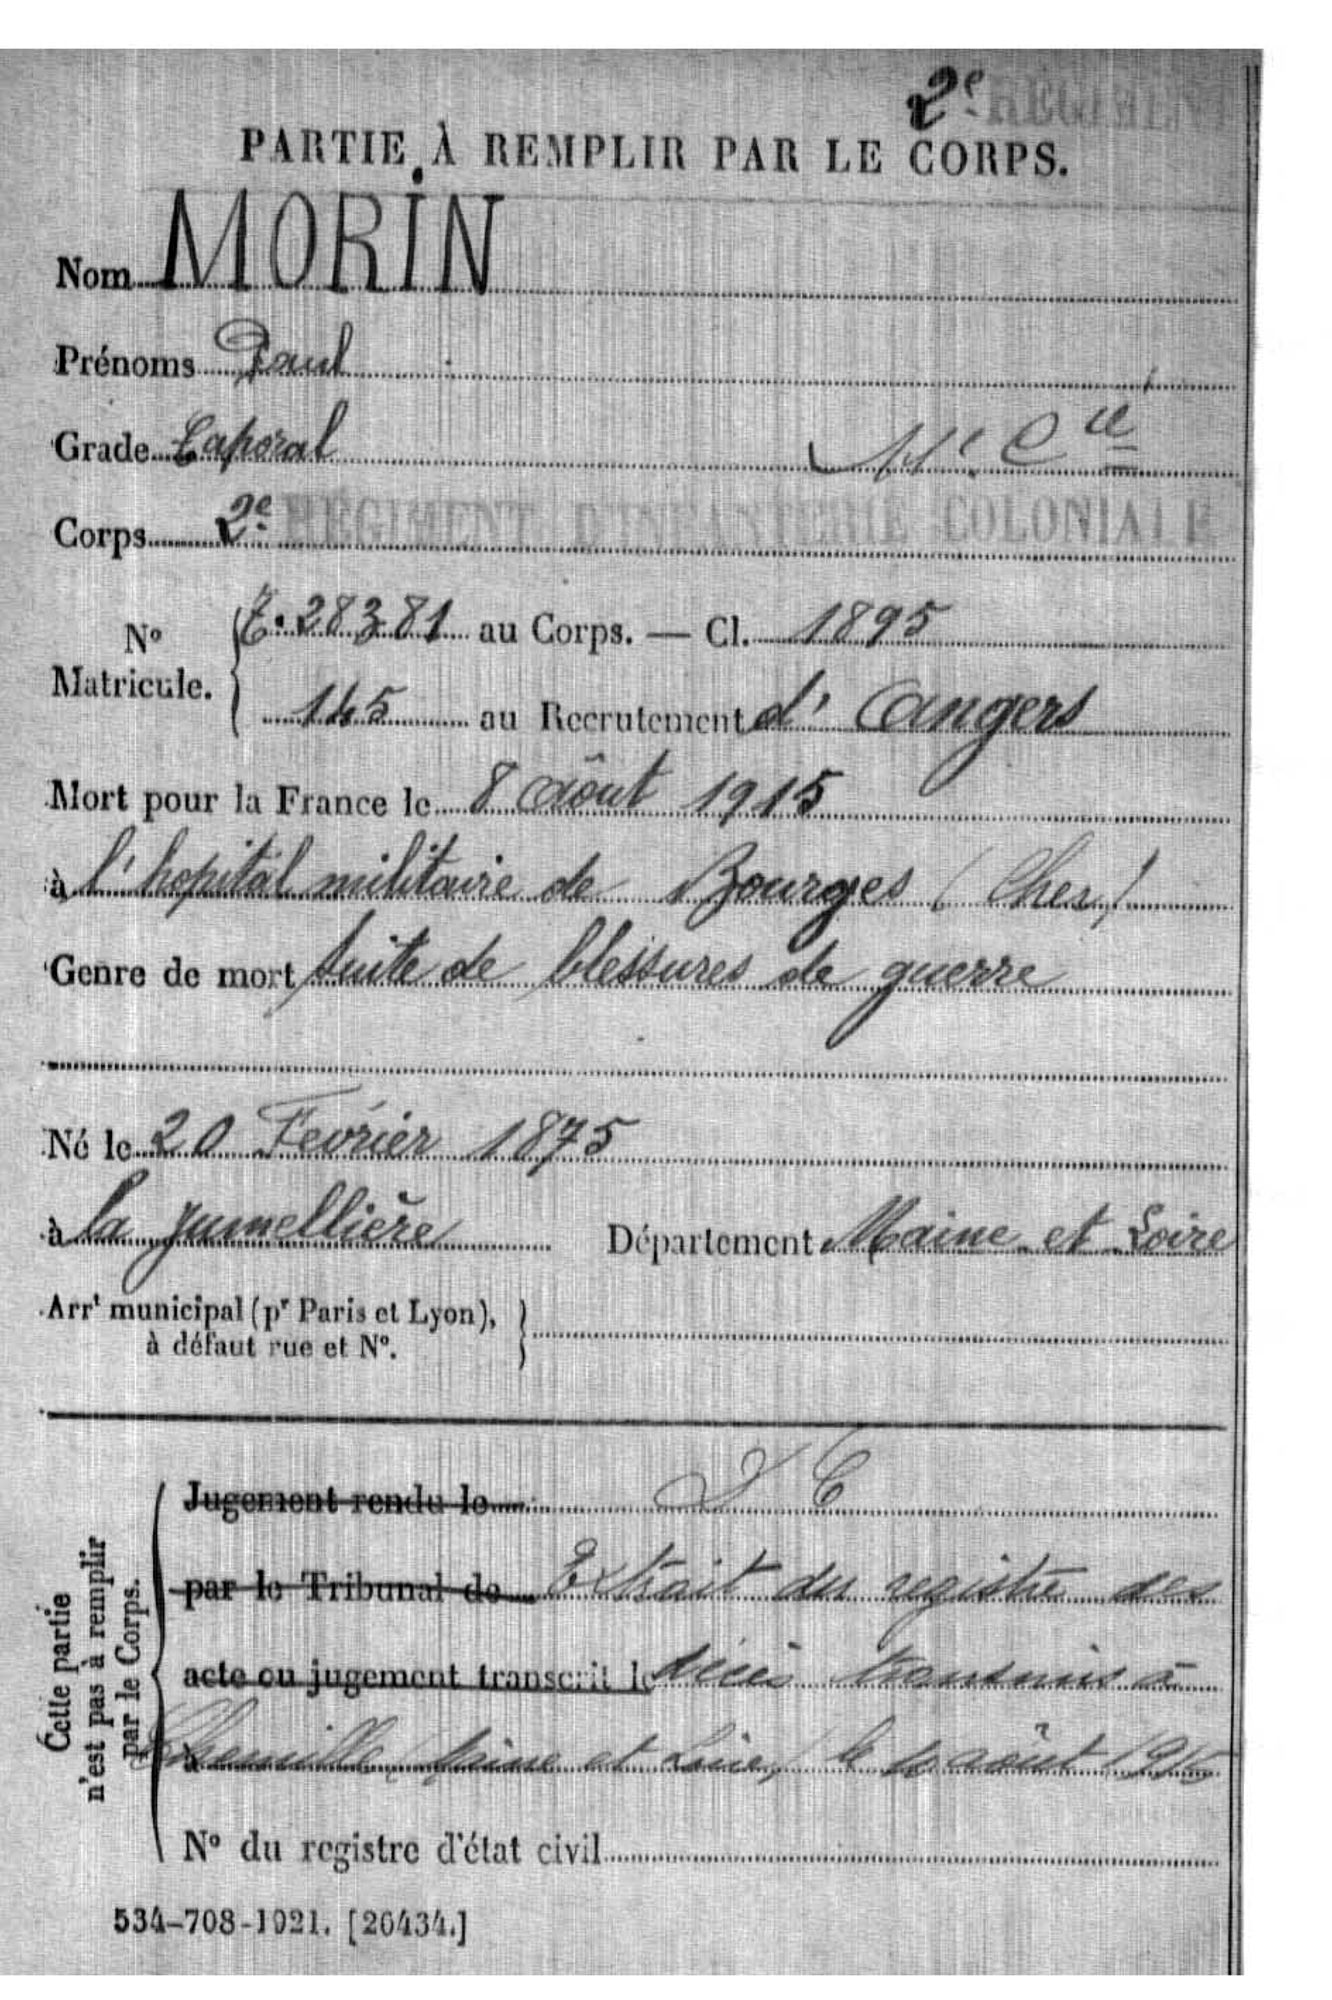 2e RÉGIMENT
PARTIE À REMPLIR PAR LE CORPS.
Nom MORIN
Prénoms Paul
Grade Caporal 11e Cie
Corps 2e RÉGIMENT D'INFANTERIE COLONIALE
No Matricule. { 28381 au Corps. — Cl. 1895
145 au Recrutement d'Angers
Mort pour la France le 8 Août 1915
à l'hopital militaire de Bourges (Cher)
Genre de mort suite de blessures de guerre
Né le 20 Février 1875
à la Jumellière Département Maine et Loire
Arrt municipal (pr Paris et Lyon),
à défaut rue et No.
Cette partie
n'est pas à remplir
par le Corps.
Jugement rendu le
par le Tribunal de Extrait du registre des
acte ou jugement transcrit le décès transmis à
à Chemillé (Maine et Loire) le août 1915
No du registre d'état civil
534-708-1921. [26434.]